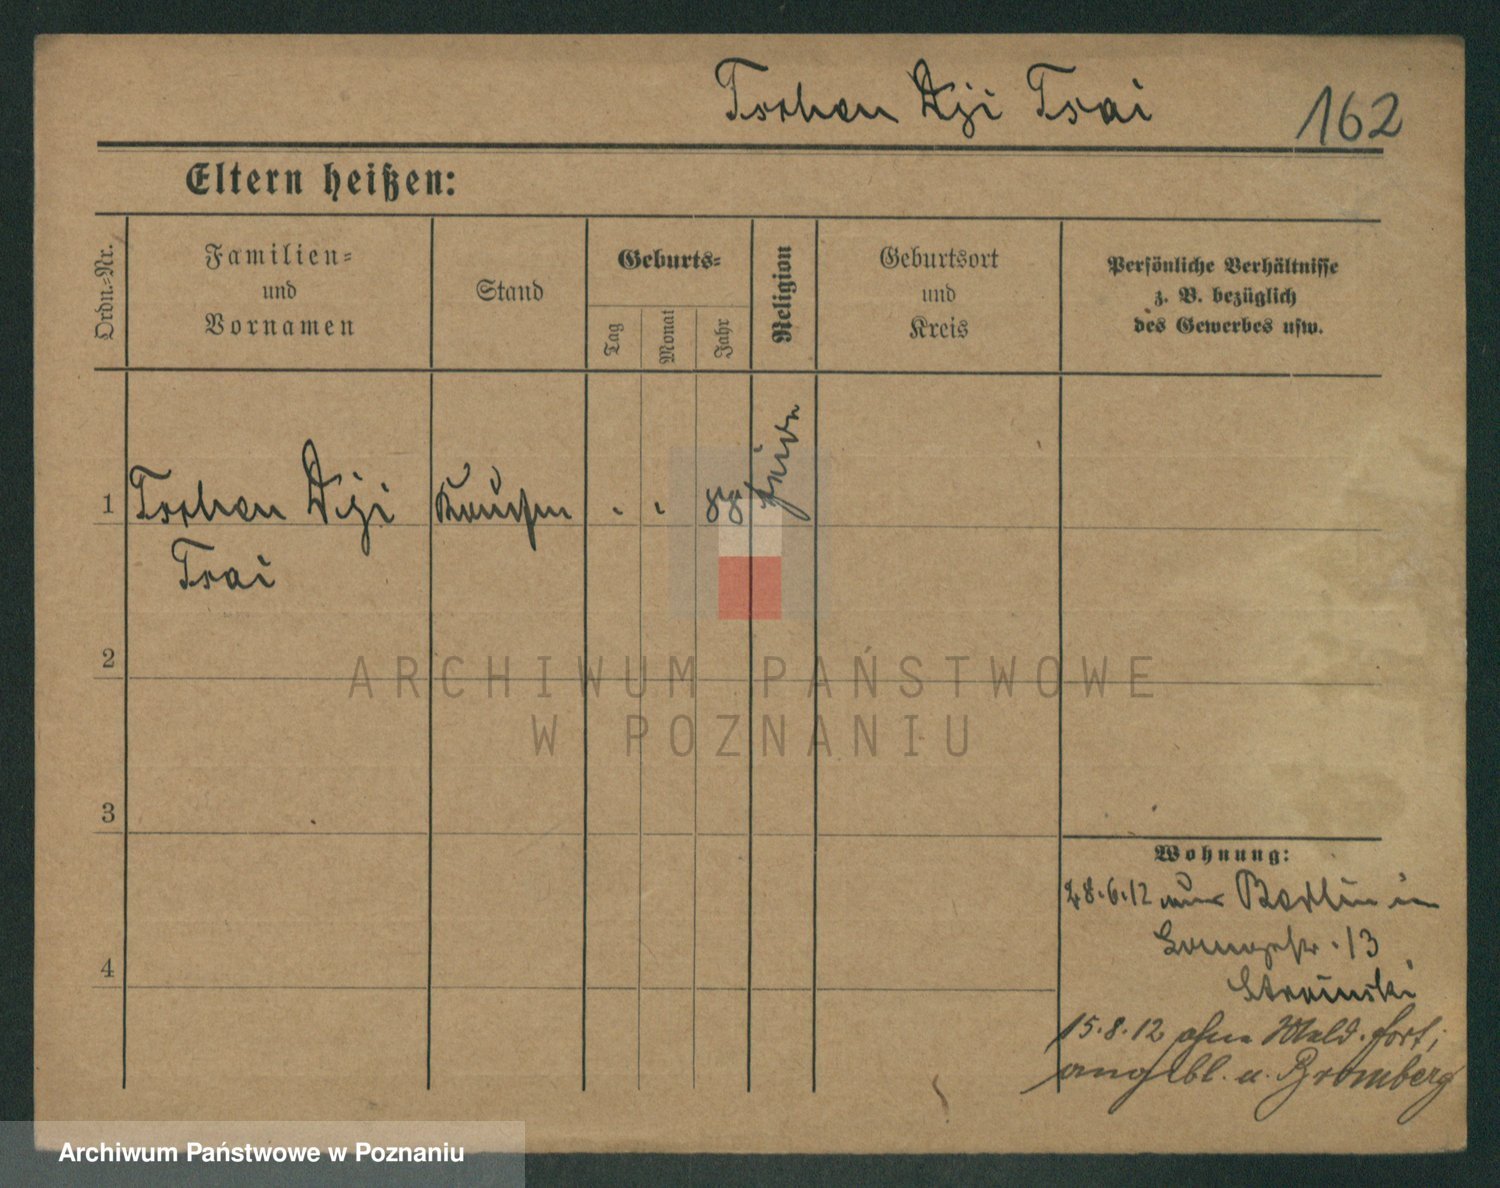 Tschen Dji Tsai
162
Eltern heißen:
Ordn.-Nr.
Familien-
und
Vornamen
Stand
Geburts-
Tag
Monat
Jahr
Religion
Geburtsort
und
Kreis
Persönliche Verhältnisse
z. B. bezüglich
des Gewerbes usw.
1
Tschen Dji
Tsai
88
2
3
4
Wohnung:
28.6.12 aus Berlin in
13
Stroinski
15.8.12 ohne Meld. fort;
angebl. n. Bromberg
ARCHIWUM PAŃSTWOWE
W POZNANIU
Archiwum Państwowe w Poznaniu